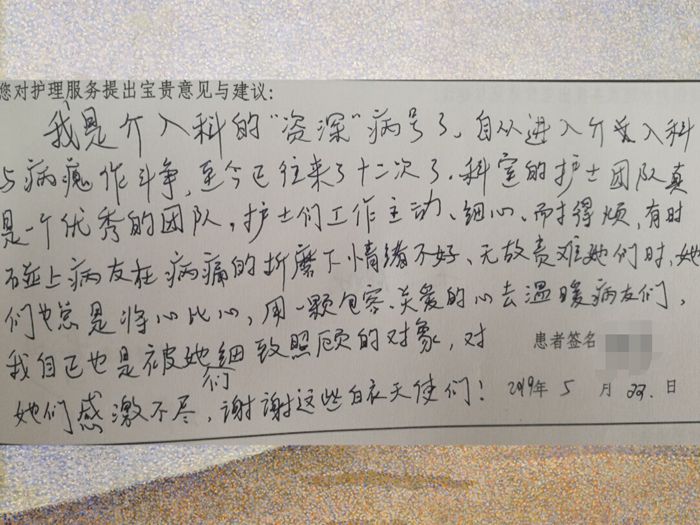 您对护理服务提出宝贵意见与建议:
我是介入科的“资深”病号了，自从进入介入科
与病魔作斗争，至今已往来了十二次了。科室的护士团队真
是一个优秀的团队，护士们工作主动、细心、而耐得烦，有时
碰上病友在病痛的折磨下情绪不好、无故责难她们时，她
们也总是将心比心，用一颗包容、关爱的心去温暖病友们，
我自己也是被她们细致照顾的对象，对
患者签名
她们感激不尽，谢谢这些白衣天使们！
2019年 5 月 22. 日